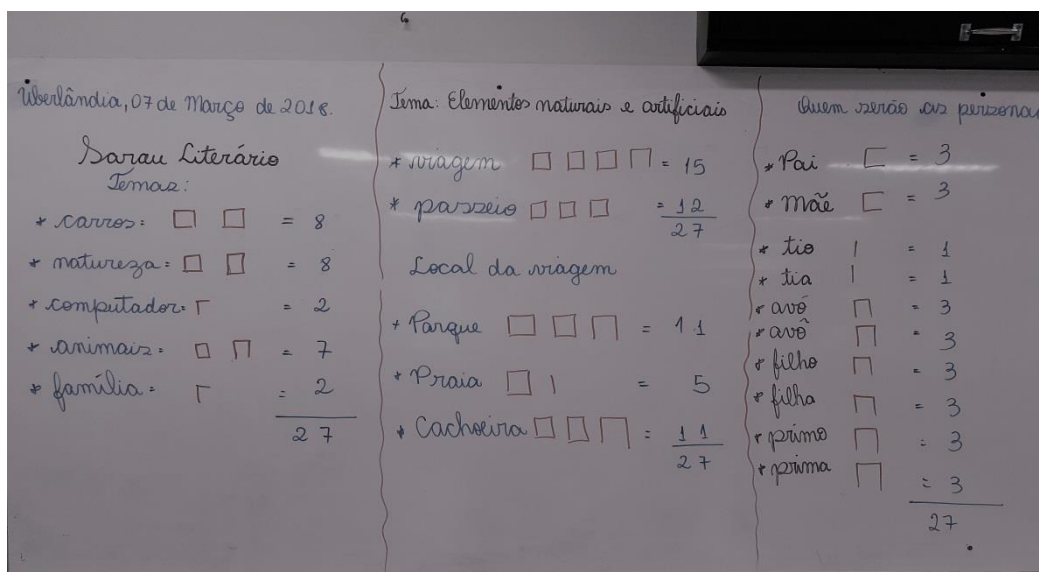 Uberlândia, 07 de Março de 2018.
Sarau Literário
Temas:
* carros: = 8
* natureza: = 8
* computador: = 2
* animais: = 7
* família: = 2
27
Tema: Elementos naturais e artificiais
* viagem = 15
* passeio = 12
27
Local da viagem
* Parque = 11
* Praia = 5
* Cachoeira = 11
27
Quem serão as persona
* Pai = 3
* Mãe = 3
* tio = 1
* tia = 1
* avó = 3
* avô = 3
* filho = 3
* filha = 3
* primo = 3
* prima = 3
27